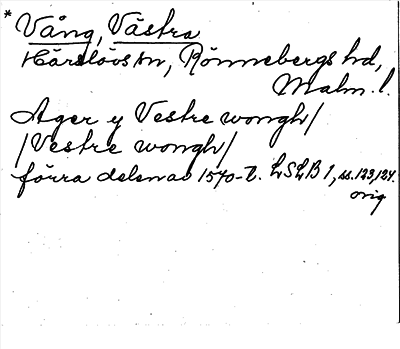 * Vång, Västra
Härslövs sn, Rönnebergs hd,
Malm. l.
Ager y Vestre wongh/
/Vestre wongh/
förra delen av 1570-t. LSLB 1, ss. 123, 124.
orig